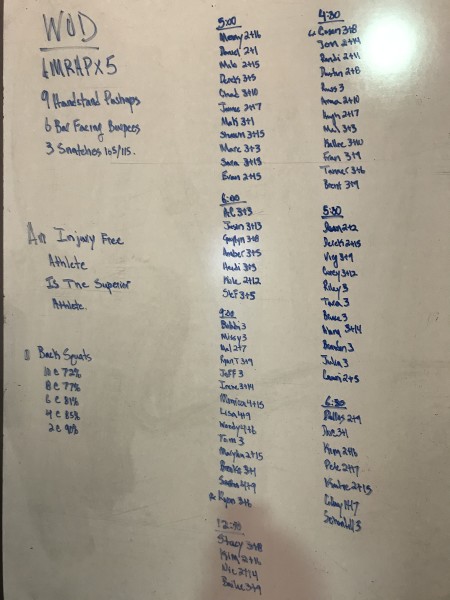 WOD
AMRAP x 5
9 Handstand Pushups
6 Bar Facing Burpees
3 Snatches 105/115.
An Injury Free
Athlete
Is The Superior
Athlete.
Back Squats
10 @ 72%
8 @ 77%
6 @ 81%
4 @ 85%
2 @ 90%
5:00
2+16
Daniel 2+1
Mike 2+15
Derek 3+5
Chad 3+10
James 2+17
3+1
Shawn 3+15
Marc 3+3
Sara 3+13
Evan 2+15
6:00
3+3
Jason 3+13
3+8
Amber 3+5
Heidi 3+3
Mike 2+12
Stef 3+5
9:00
Bobbi 3
Missy 3
2+7
Ryan T 3+9
Jeff 3
Irene 3+14
Monica 4+15
Lisa 4+9
Wendy 4+6
Tom 3
Marylin 2+15
Brooks 3+1
Sasha 4+9
Ryan 3+6
12:30
Stacy 3+8
Kim 2+16
Nic 2+14
3+9
4:30
3+8
Jenn 2+14
Randi 2+11
Dustin 2+8
Russ 3
2+10
Hugh 2+17
3+3
3+10
Fran 3+9
Tanner 3+6
Brent 3+9
5:30
2+2
Derek 2+15
3+9
Corey 3+12
Riley 3
Tara 3
Bruce 3
3+14
Brandon 3
Julia 3
2+5
6:30
Dallas 2+9
3+1
Kim 2+16
Pete 2+17
2+15
1+17
3